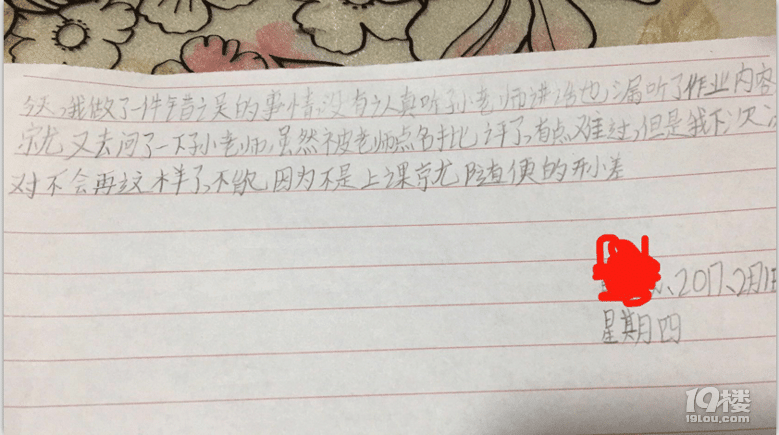 今天,我做了一件错误的事情,没有认真听孙老师讲话也,漏听了作业内容
就又去问了一下孙老师,虽然被老师点名批评了,有点难过,但是我下次
对不会再这样了,不能因为不是上课就随便的开小差
2017、2月1
星期四
19楼
19lou.com